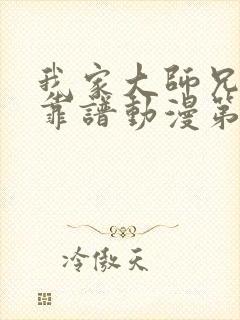 我家大師兄
靠譜動漫第
冷傲天